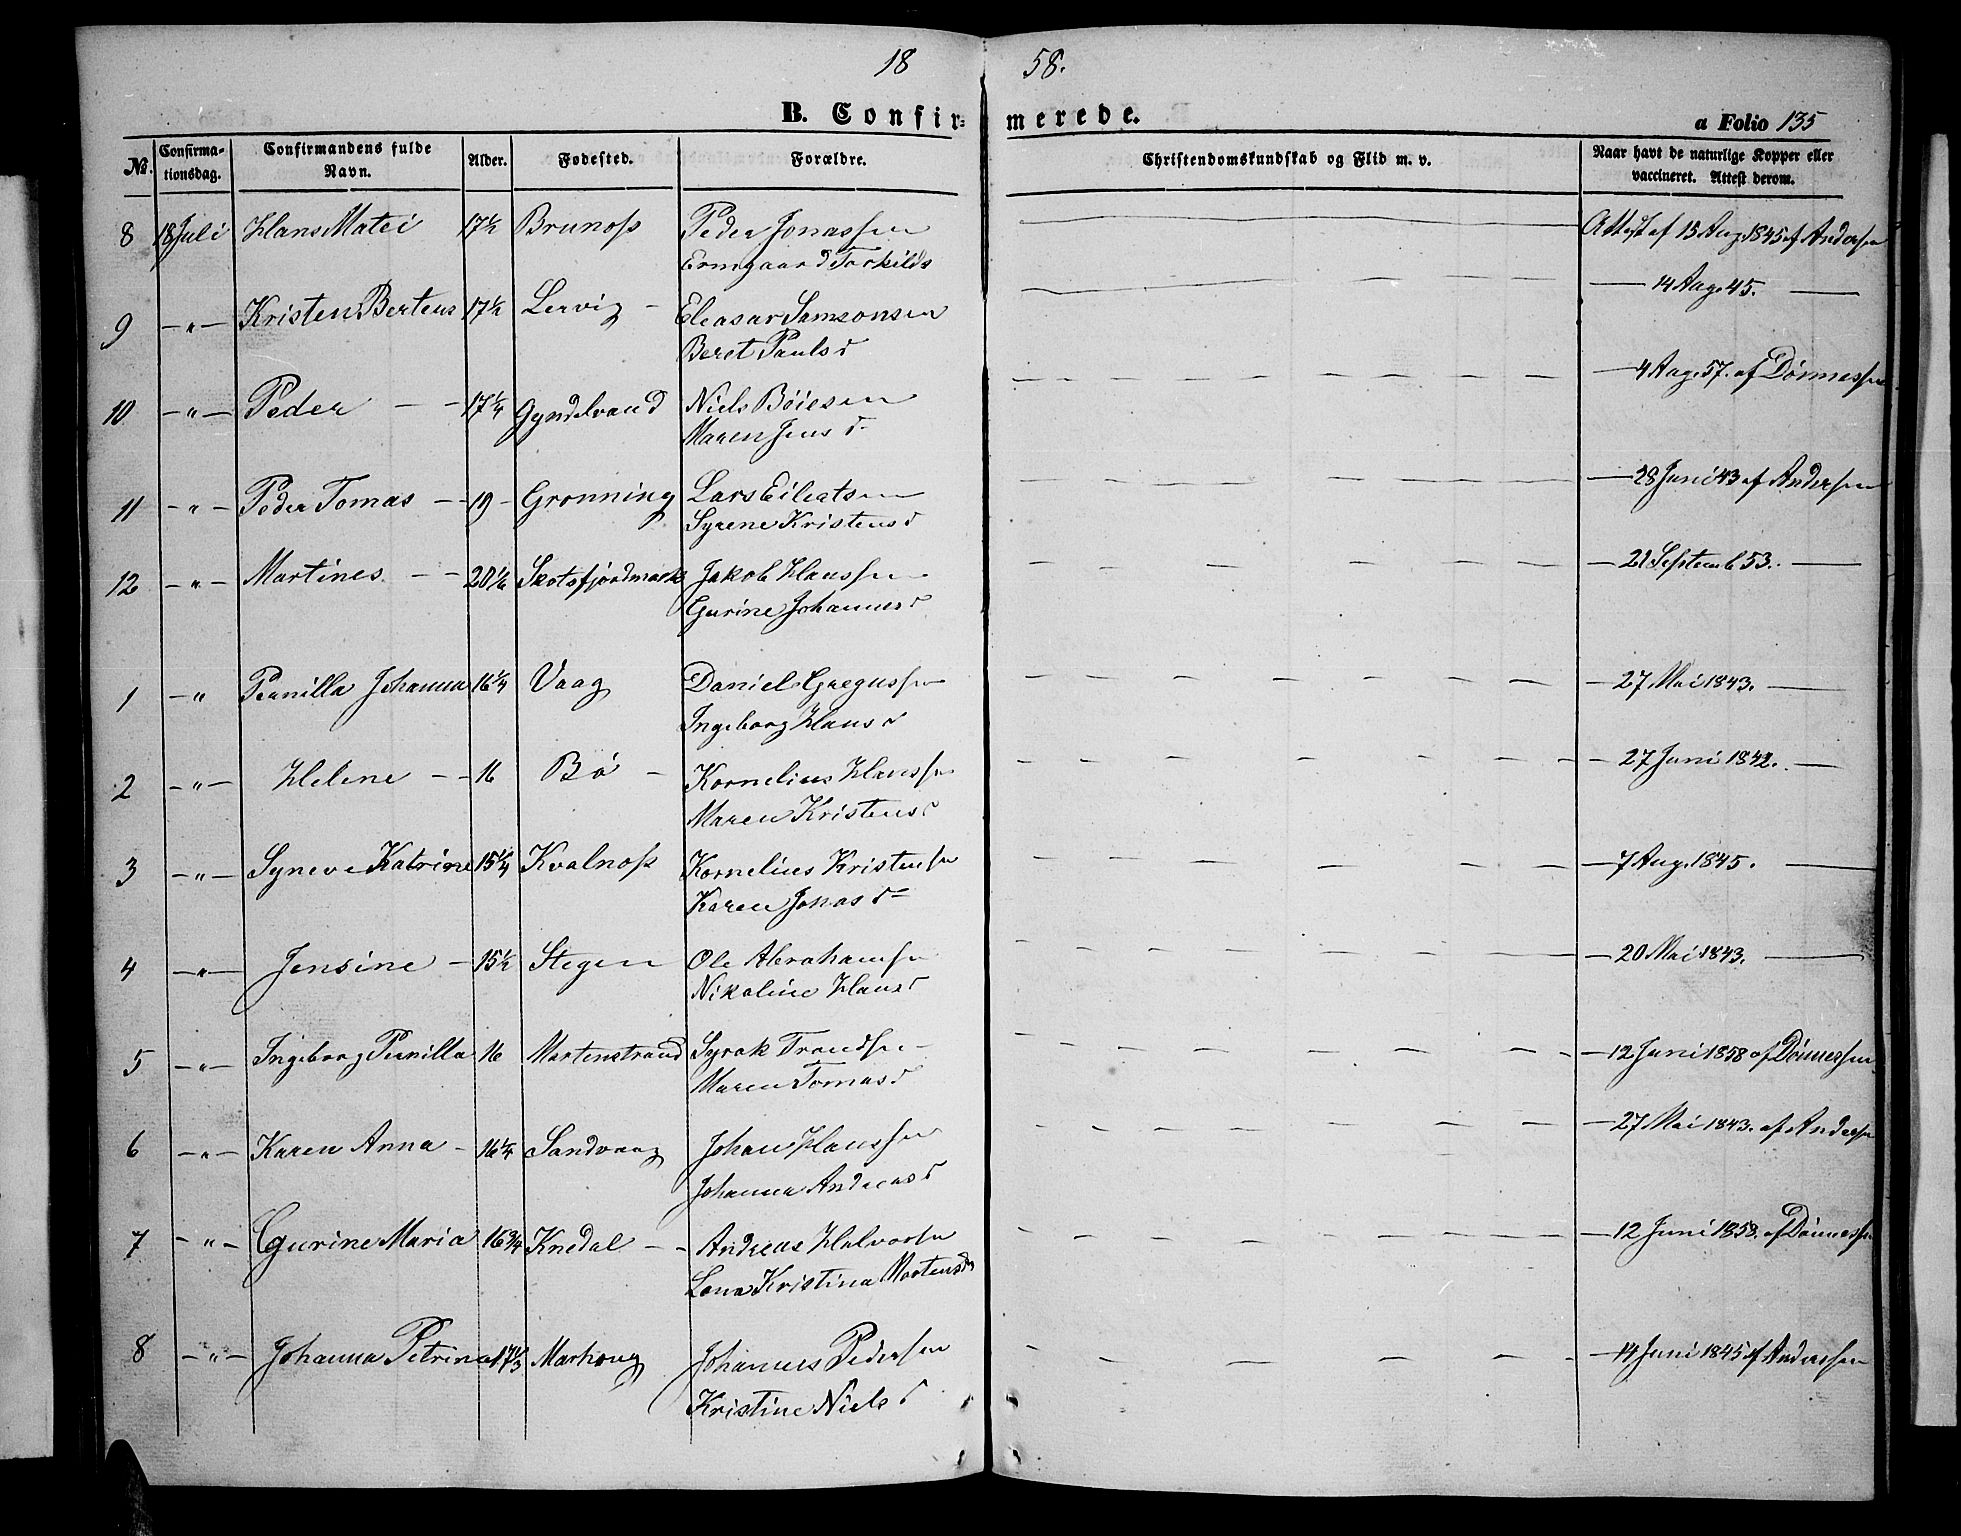 18 58.
B. Confirmerede. a Folio 135
No. Confirmationsdag. Confirmandens fulde Navn. Alder. Fødested. Forældre. Christendomskundskab og Flid m. v. Naar havt de naturlige Kopper eller vaccineret. Attest derom.
8 18 Juli Hans Matei 17½ Brunoss Peder Jonassen Attest af 15 Aug 1845 af Andersen
Ermgaard Torkilds
9 –"– Kristen Berteus 17½ Lervig – Eleasar Samsonsen — 14 Aug. 45. —
Beret Paulsd
10 –"– Peder – – 17¼ Gyndelvand Niels Bøiesen — 4 Aug. 57. af Dønnessen
Maren Jensd
11 –"– Peder Tomas – – 19 – Gronning Lars Eileatsen — 28 Juni 43 af Andersen
Syrene Kristensd
12 –"– Martines – – 20⅙ Skotsfjordmark Jakob Hanssen — 21 Septemb 53. —
Gurine Johannesd
1 –" Pernilla Johanna 16¼ Vaag Daniel Gregussen — 27 Mai 1843. —
Ingeborg Hansd
2 –"– Helene – – 16 Bø – Kornelius Hanssen — 27 Juni 1842. —
Maren Kristensd
3 –"– Syneve Katrine 15¼ Kvalnoss Kornelius Kristensen — 7 Aug. 1845. —
Karen Jonasd
4 –"– Jensine – 15½ Stegen Ole Abrahamsen — 20 Mai 1843. —
Nikoline Hansd
5 –"– Ingeborg Pernilla 16 Mortenstrand Syrak Trondsen – — 12 Juni 1858 af Dønnessen
Maren Tomasd
6 –"– Karen Anna – 16¼ Sandvaag Johan Hanssen — 27 Mai 1843. af Andersen
Johanna Andreasd
7 –"– Gurine Maria 16¾ Knedal – – Andreas Halvorsen — 12 Juni 1858. af Dønnessen
Lona Kristina Mortensd
8 –"– Johanna Petrina 17⅓ Marhoug Johannes Pedersen — 14 Juni 1845 af Anderssen
Kristine Nielsd